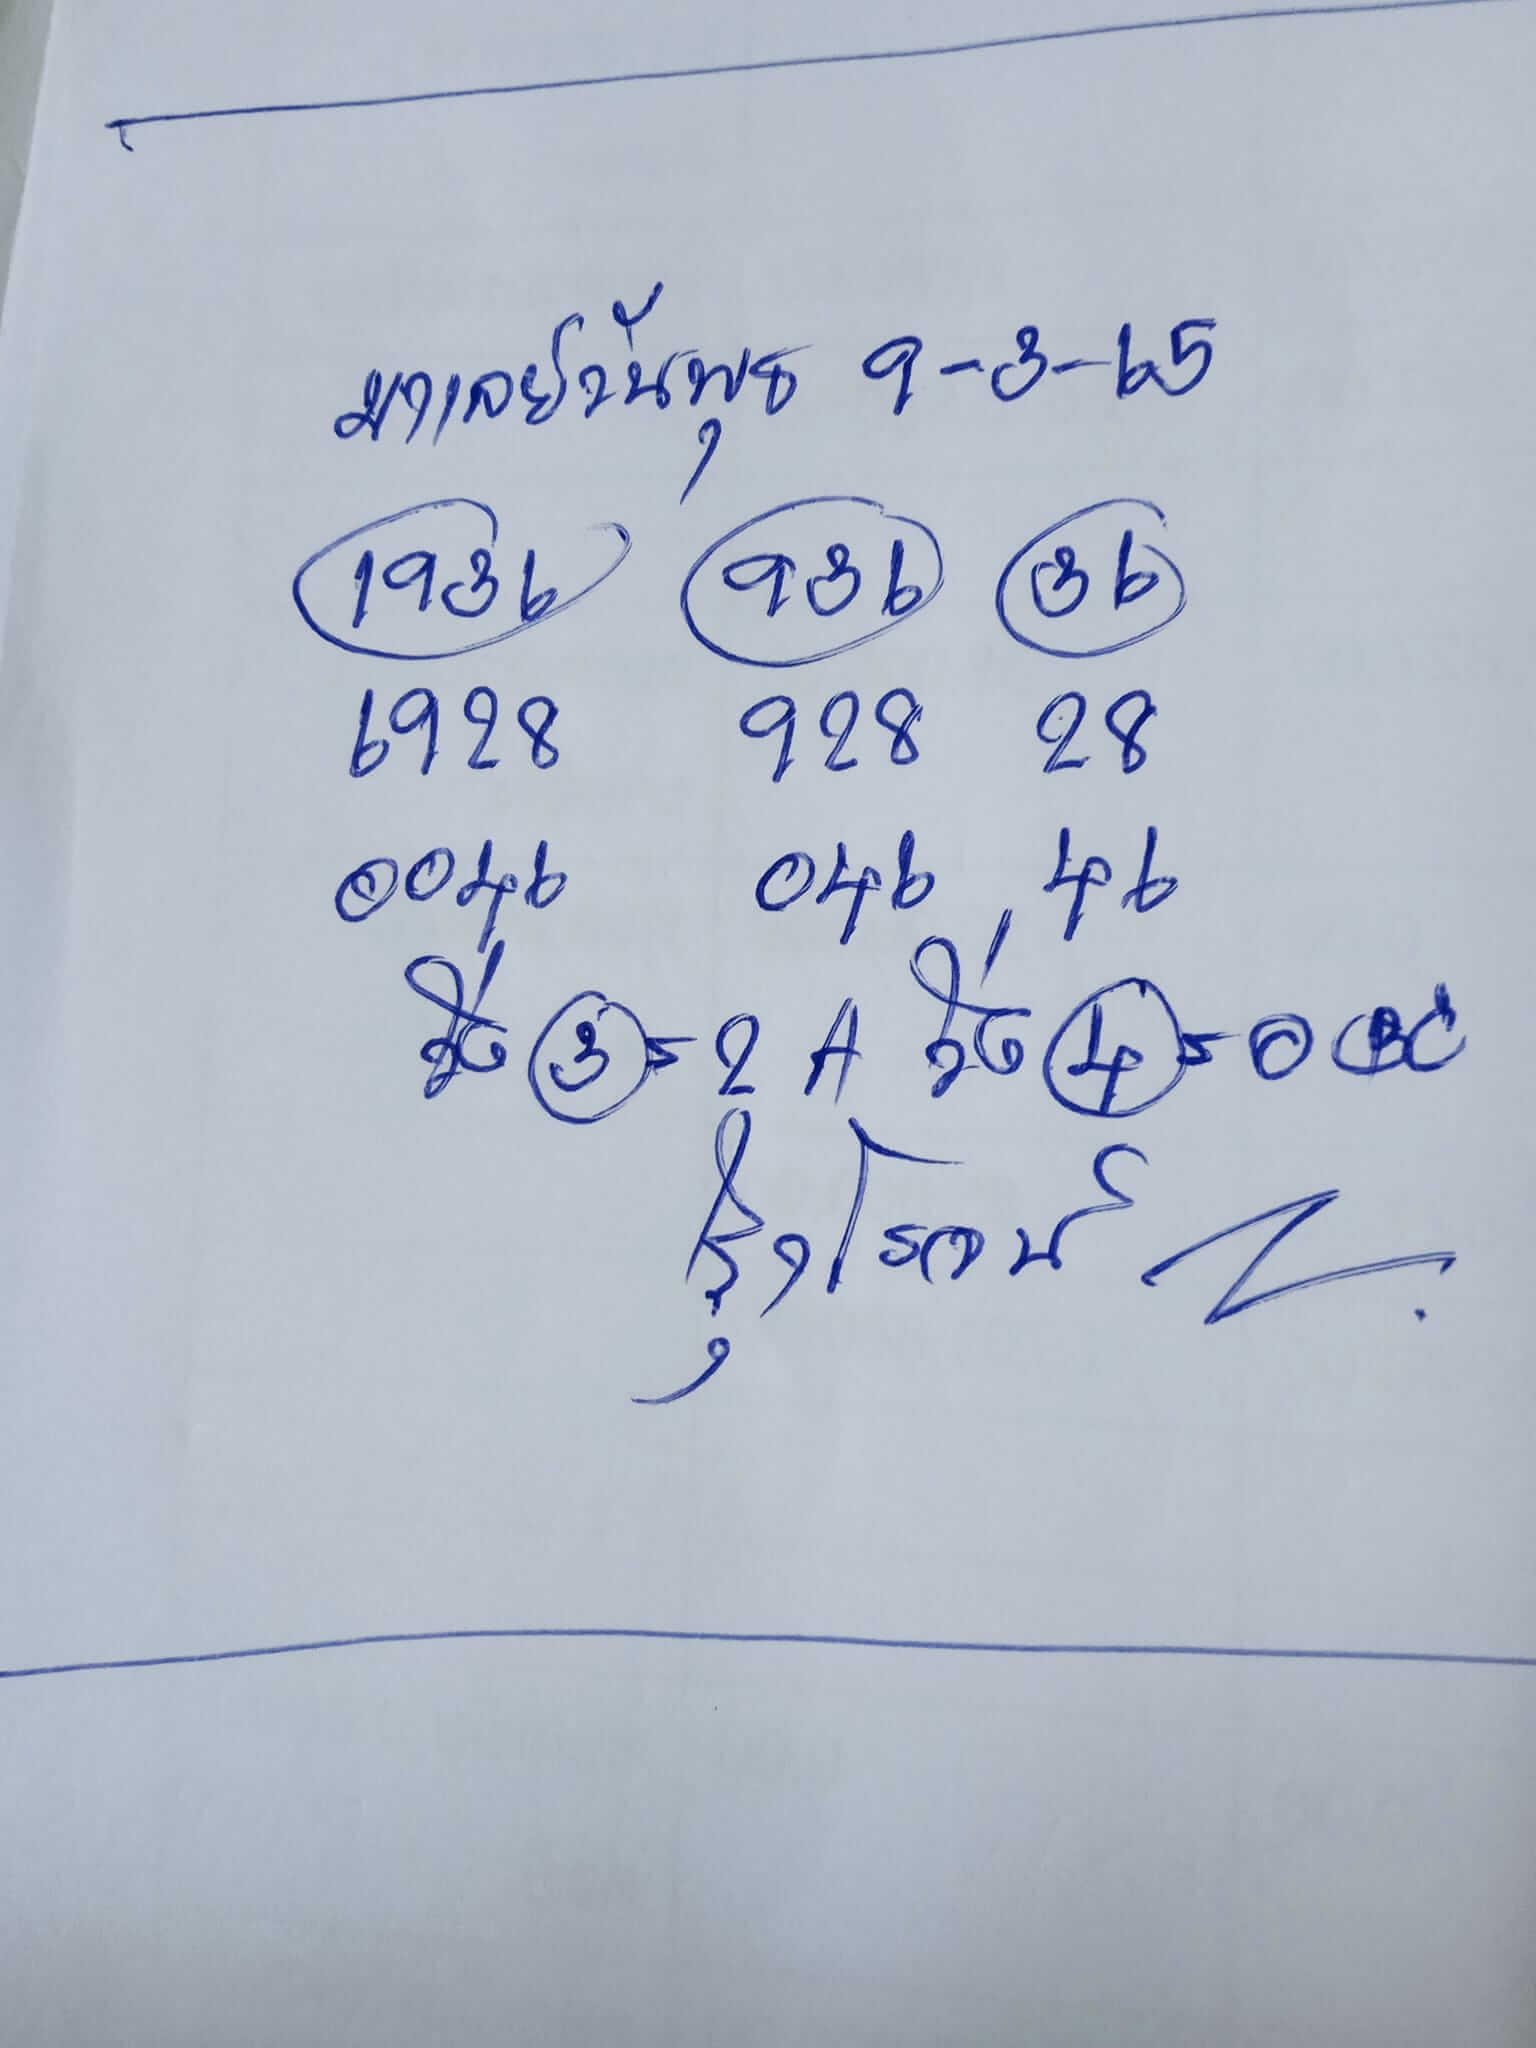 มาเลย์วันพุธ 9-3-65
1936 936 36
6928 928 28
0046 046 46
วิ่ง 3 = 2 A วิ่ง 4 = 0 BC
โรจน์